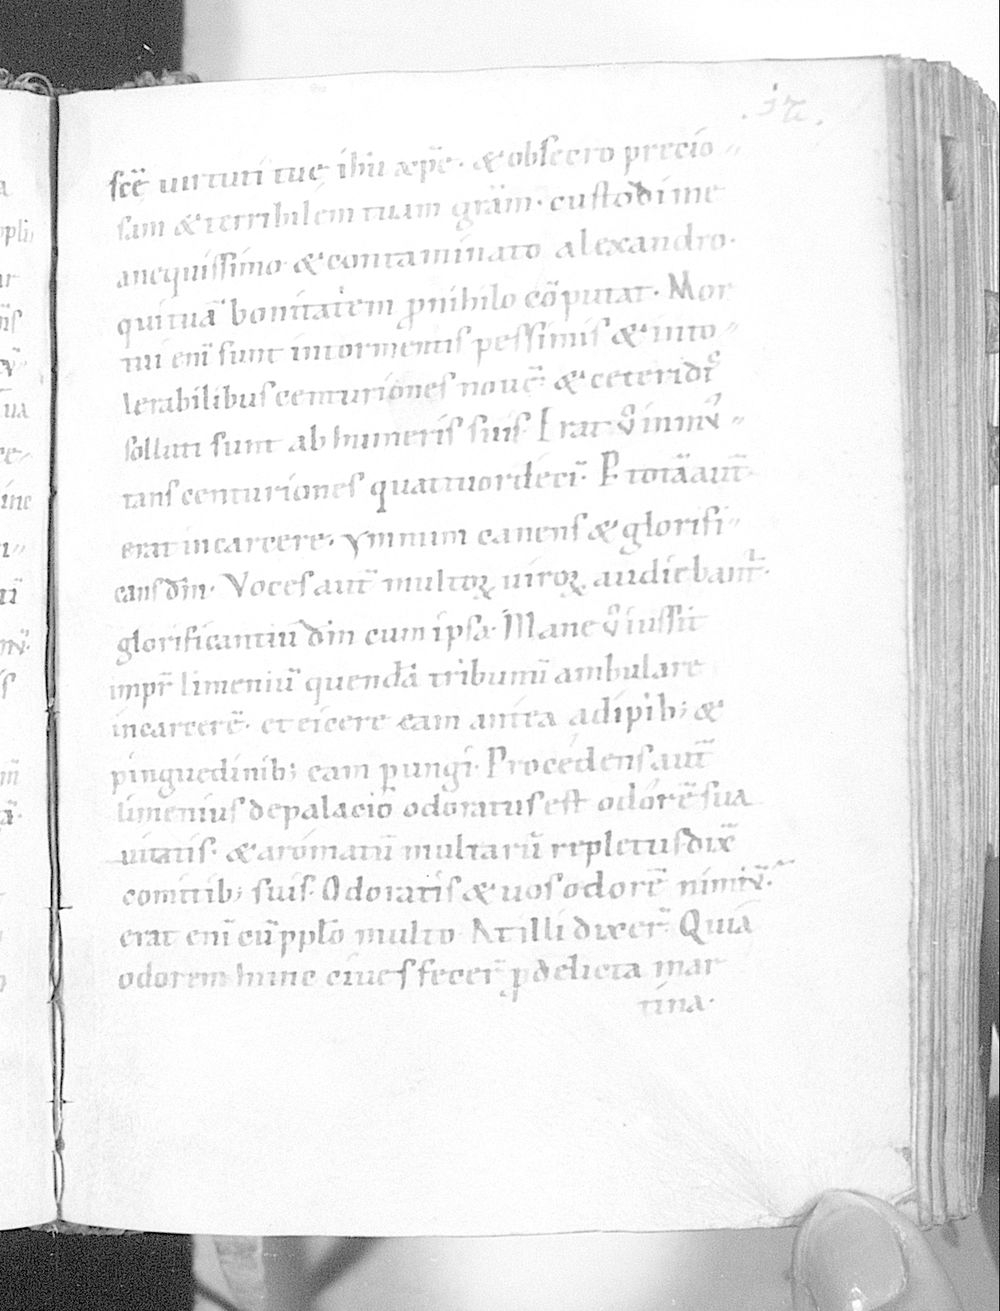 .37.
scē uirtuti tuę ihū xp̄e. & obsecro precio-
sam & terribilem tuam grām. custodi me
anequissimo & contaminato alexandro.
qui tuā bonitatem ꝓnihilo cōputat. Mor
tui enī sunt intormentis pessimis & into-
lerabilibus centuriones nouē. & ceteri di
solluti sunt ab humeris suis. Erat
tans centuriones quattuordecī. totā aut̄
erat incarcere. ymnum canens & glorifi-
cans dm̄. Voces aut̄ multoꝝ uiroꝝ audiebant.
glorificantiū dm̄ cum ipsa. Mane iussit
impr̄ limeniū quendā tribunū ambulare
incarcerē. et eicere eam antea adipib; &
pinguedinib; eam pungi. Procedens aut̄
limenius depalacio odoratus est odorē sua
uitatis. & aromatū multarū repletus dix̄
comitib; suis. Odoratis & uos odorē nimiū.
erat enī cū pplo multo At illi dixer̄. Quia
odorem hunc ciues fecer̄ ꝓ delicta mar
tina.